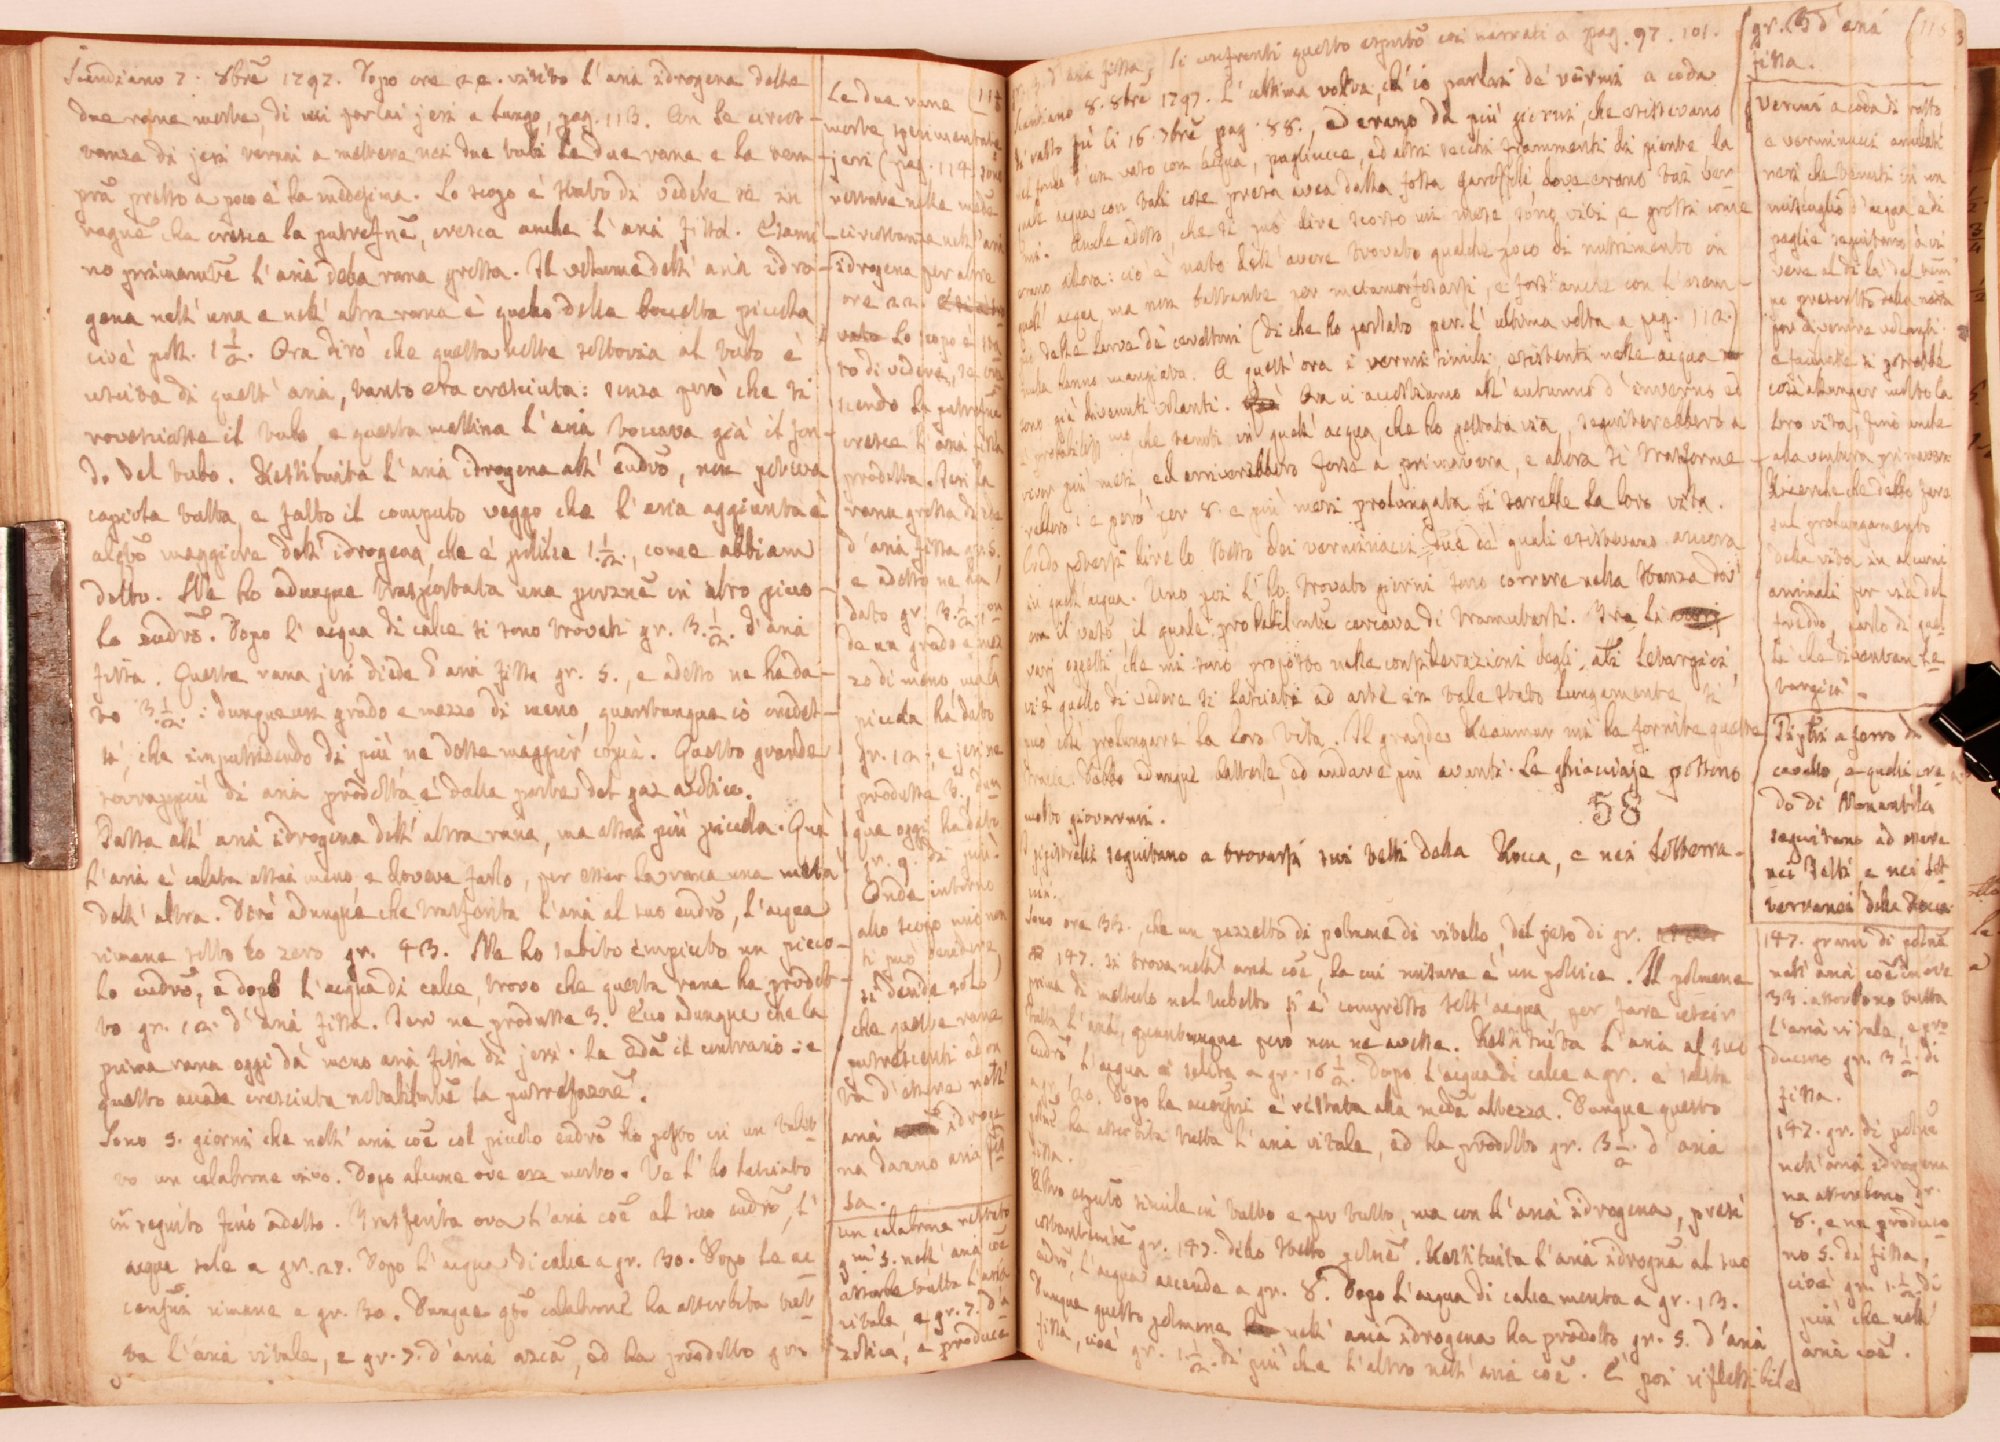 Scandiano 7. 8bre 1797. Dopo ore 22. visito l'aria idrogena delle
due rane morte, di cui parlai jeri a lungo, pag. 113. Le circos-
tanze di jeri a mettere nei due tubi le due rane e la tem
pra presso a poco è la medesima. Lo scopo è stato di vedere se in
ragne che cresca la putrefne, cresca anche l'aria fissa. Esami
no primamte l'aria della rana grossa. Il volume dell'aria idro-
gena nell'una e nell'altra rana è quello della boccetta piccola
cioè poll. 1 1/2. Ora dirò che questa notte sottovia al tubo è
uscita di quest'aria, tanto era cresciuta: senza però che si
rovesciasse il tubo, e questa mattina l'aria toccava già il fon-
do del tubo. Restituita l'aria idrogena all'eudro, non poteva
capirla tutta, e fatto il computo veggo che l'aria aggiunta è
maggiore dell'idrogena, che è pollice 1 1/2., come abbiam
detto. Ne ho adunque trasportata una porzne in altro picco-
lo eudro. Dopo l'acqua di calce si sono trovati gr. 3. 1/2. d'aria
fissa. Questa rana jeri diede d'aria fissa gr. 5., e adesso ne ha da-
to 3 1/2.: dunque un grado e mezzo di meno, quantunque io credes-
si, che imputridendo di più ne desse maggior copia. Questo grande
sovrappiù di aria prodotta è dalla parte del gaz azotico.
Passo all'aria idrogena dell'altra rana, ma assai più piccola. Qui
l'aria è calata assai meno, e doveva farlo, per esser la rana una metà
dell'altra. Dirò adunque che trasferita l'aria al suo eudro, l'acqua
rimane sotto lo zero gr. 43. Ne ho subito empiuto un picco-
lo eudro, e dopo l'acqua di calce, trovo che questa rana ha prodot-
to gr. 12. d'aria fissa. Jeri ne produsse 3. Ecco adunque che la
prima rana oggi dà meno aria fissa di jeri. La 2da il contrario: e
questo accade cresciuta notabilmte la putrefazne.
Sono 5. giorni che nell'aria coe col piccolo eudro ho posto in un tubet-
to un calabrone vivo. Dopo alcune ore era morto. Ve l'ho lasciato
in seguito fino adesso. Trasferita ora l'aria coe al suo eudro, l'
acqua sale a gr. 27. Dopo l'acqua di calce a gr. 30. Dopo le ac
censni rimane a gr. 30. Dunque qto calabrone ha assorbita tut-
ta l'aria vitale, e gr. 7. d'aria azca, ed ha prodotto gr.
114
Le due rane
morte sperimentate
jeri (pag. 114) sono
restate nelle mede
circostanze nell'aria
idrogena per altre
ore 22.
Lo scopo è sta
to di vedere, se cre
scendo la putrefne
cresce l'aria fissa
prodotta. Jeri la
rana grossa diede
d'aria fissa gr. 5.
e adesso ne ha
dato gr. 3. 1/2. on
de un grado e mez
zo di meno, ma la
piccola ha dato
gr. 12., e jeri ne
produsse 3. dun
que oggi ha dato
gr. 9. di più.
Onde intorno
allo scopo mio non
si può decidere
si decide solo
che queste rane
putrescenti ad on
ta d'essere nell'
aria idroge
na danno aria fis
sa.
Un calabrone restato
gni 5. nell'aria coe
assorbe tutta l'aria
vitale, e gr. 7. d'a
zotica, e produce
gr. 3. d'aria fissa. Si confronti questo esperimto coi narrati a pag. 97. 101.
Scandiano 8. 8bre 1797. L'ultima volta, ch'io parlai de' vermi a coda
di ratto fu li 16. 7bre pag. 88., ed erano da più giorni, che esistevano
nel fondo d'un vaso con acqua, pagliucce, ed altri secchi frammenti di piante la
quale acqua con tali cose presa avea dalla fossa dove erano tai ver-
mi. Anche adesso, che si può dire scorso un mese sono vivi, e grossi come
erano allora: ciò è nato dall'avere trovato qualche poco di nutrimento in
quell'acqua, ma non bastante per metamorfosarsi, e fors'anche con l'esem-
pio delle larve de' cavettoni (di che ho parlato per l'ultima volta a pag. 112.)
nulla hanno mangiato. A quest'ora i vermi simili esistenti nelle acque
sono già divenuti volanti. Ora ci accostiamo all'autunno d'inverno ed
è probabiliss mo, che tenuti in quell'acqua, che ho gettata via, seguiterebbero a
viver più mesi, ed arriverebbero forse a primavera, e allora si trasforme-
rebbero: e però per 8. e più mesi prolungata si sarebbe la loro vita.
Credo potersi dire lo stesso dei verminacci, due de' quali esistevano ancora
in quell'acqua. Uno poi l'ho trovato giorni sono correre nella stanza dov'
era il vaso, il quale probabilmte cercava di tramutarsi. Tra li
varj oggetti, che mi sono proposto nelle considerazioni degli ali letargici,
vi è quello di vedere se lasciati ad arte in tale stato lungamente, si
può così prolungare la loro vita. Il grande Reaumur mi ha fornite queste
tracce. Debbo adunque batterle, ed andare più avanti. Le ghiacciaje possono
molto giovarmi.
58
I pipistrelli seguitano a trovarsi sui tetti della Rocca, e nei sotterra-
nei.
Sono ore 33., che un pezzetto di polmone di vitello, del peso di gr.
147. si trova nell'aria coe, la cui misura è un pollice. Il polmone
prima di metterlo nel tubetto si è compresso sott'acqua, per fare uscir
tutta l'aria, quantunque però non ne avesse. Restituita l'aria al suo
eudro, l'acqua è salita a gr. 16 1/2. Dopo l'acqua di calce a gr. è salita
a gr. 20. Dopo le accensni è restata alla meda altezza. Dunque questo
polne ha assorbita tutta l'aria vitale, ed ha prodotto gr. 3 1/2. d'aria
fissa.
Altro esperimto simile in tutto e per tutto, ma con l'aria idrogena, presi
costantemte gr. 147. dello stesso polne. Restituita l'aria idrogna al suo
eudro, l'acqua ascende a gr. 8. Dopo l'acqua di calce monta a gr. 13.
Dunque questo polmone nell'aria idrogena ha prodotto gr. 5. d'aria
fissa, cioè gr. 1 1/2. di più che l'altro nell'aria coe. È poi riflessibile
gr. 3 d'aria
fissa.
115
Vermi a coda di ratto
e verminacci
neri che tenuti in un
miscuglio d'acqua e di
paglie seguitano a vi
vere al di là del termi
ne prescritto dalla natura
per divenire volanti.
e facilmte si potrebbe
così allungar molto la
loro vita, fino anche
alla ventura primavera
Ricerche che debbo fare
sul prolungamento
della vita in alcuni
animali per via del
freddo, parlo di quel-
li che diventan le-
targici.
Pipistri a ferro di
cavallo, e quelli cre
do di Nonantola
seguitano ad essere
nei tetti, e nei sot-
terranei della Rocca
147. grani di polne
nell'aria coe in ore
33. assorbono tutta
l'aria vitale, e pro
ducono gr. 3 1/2. di
fissa.
147. gr. di polne
nell'aria idrogena
ne assorbono gr.
8., e ne produco
no 5. di fissa,
cioè gr. 1. 1/2. di
più che nell'
aria coe.